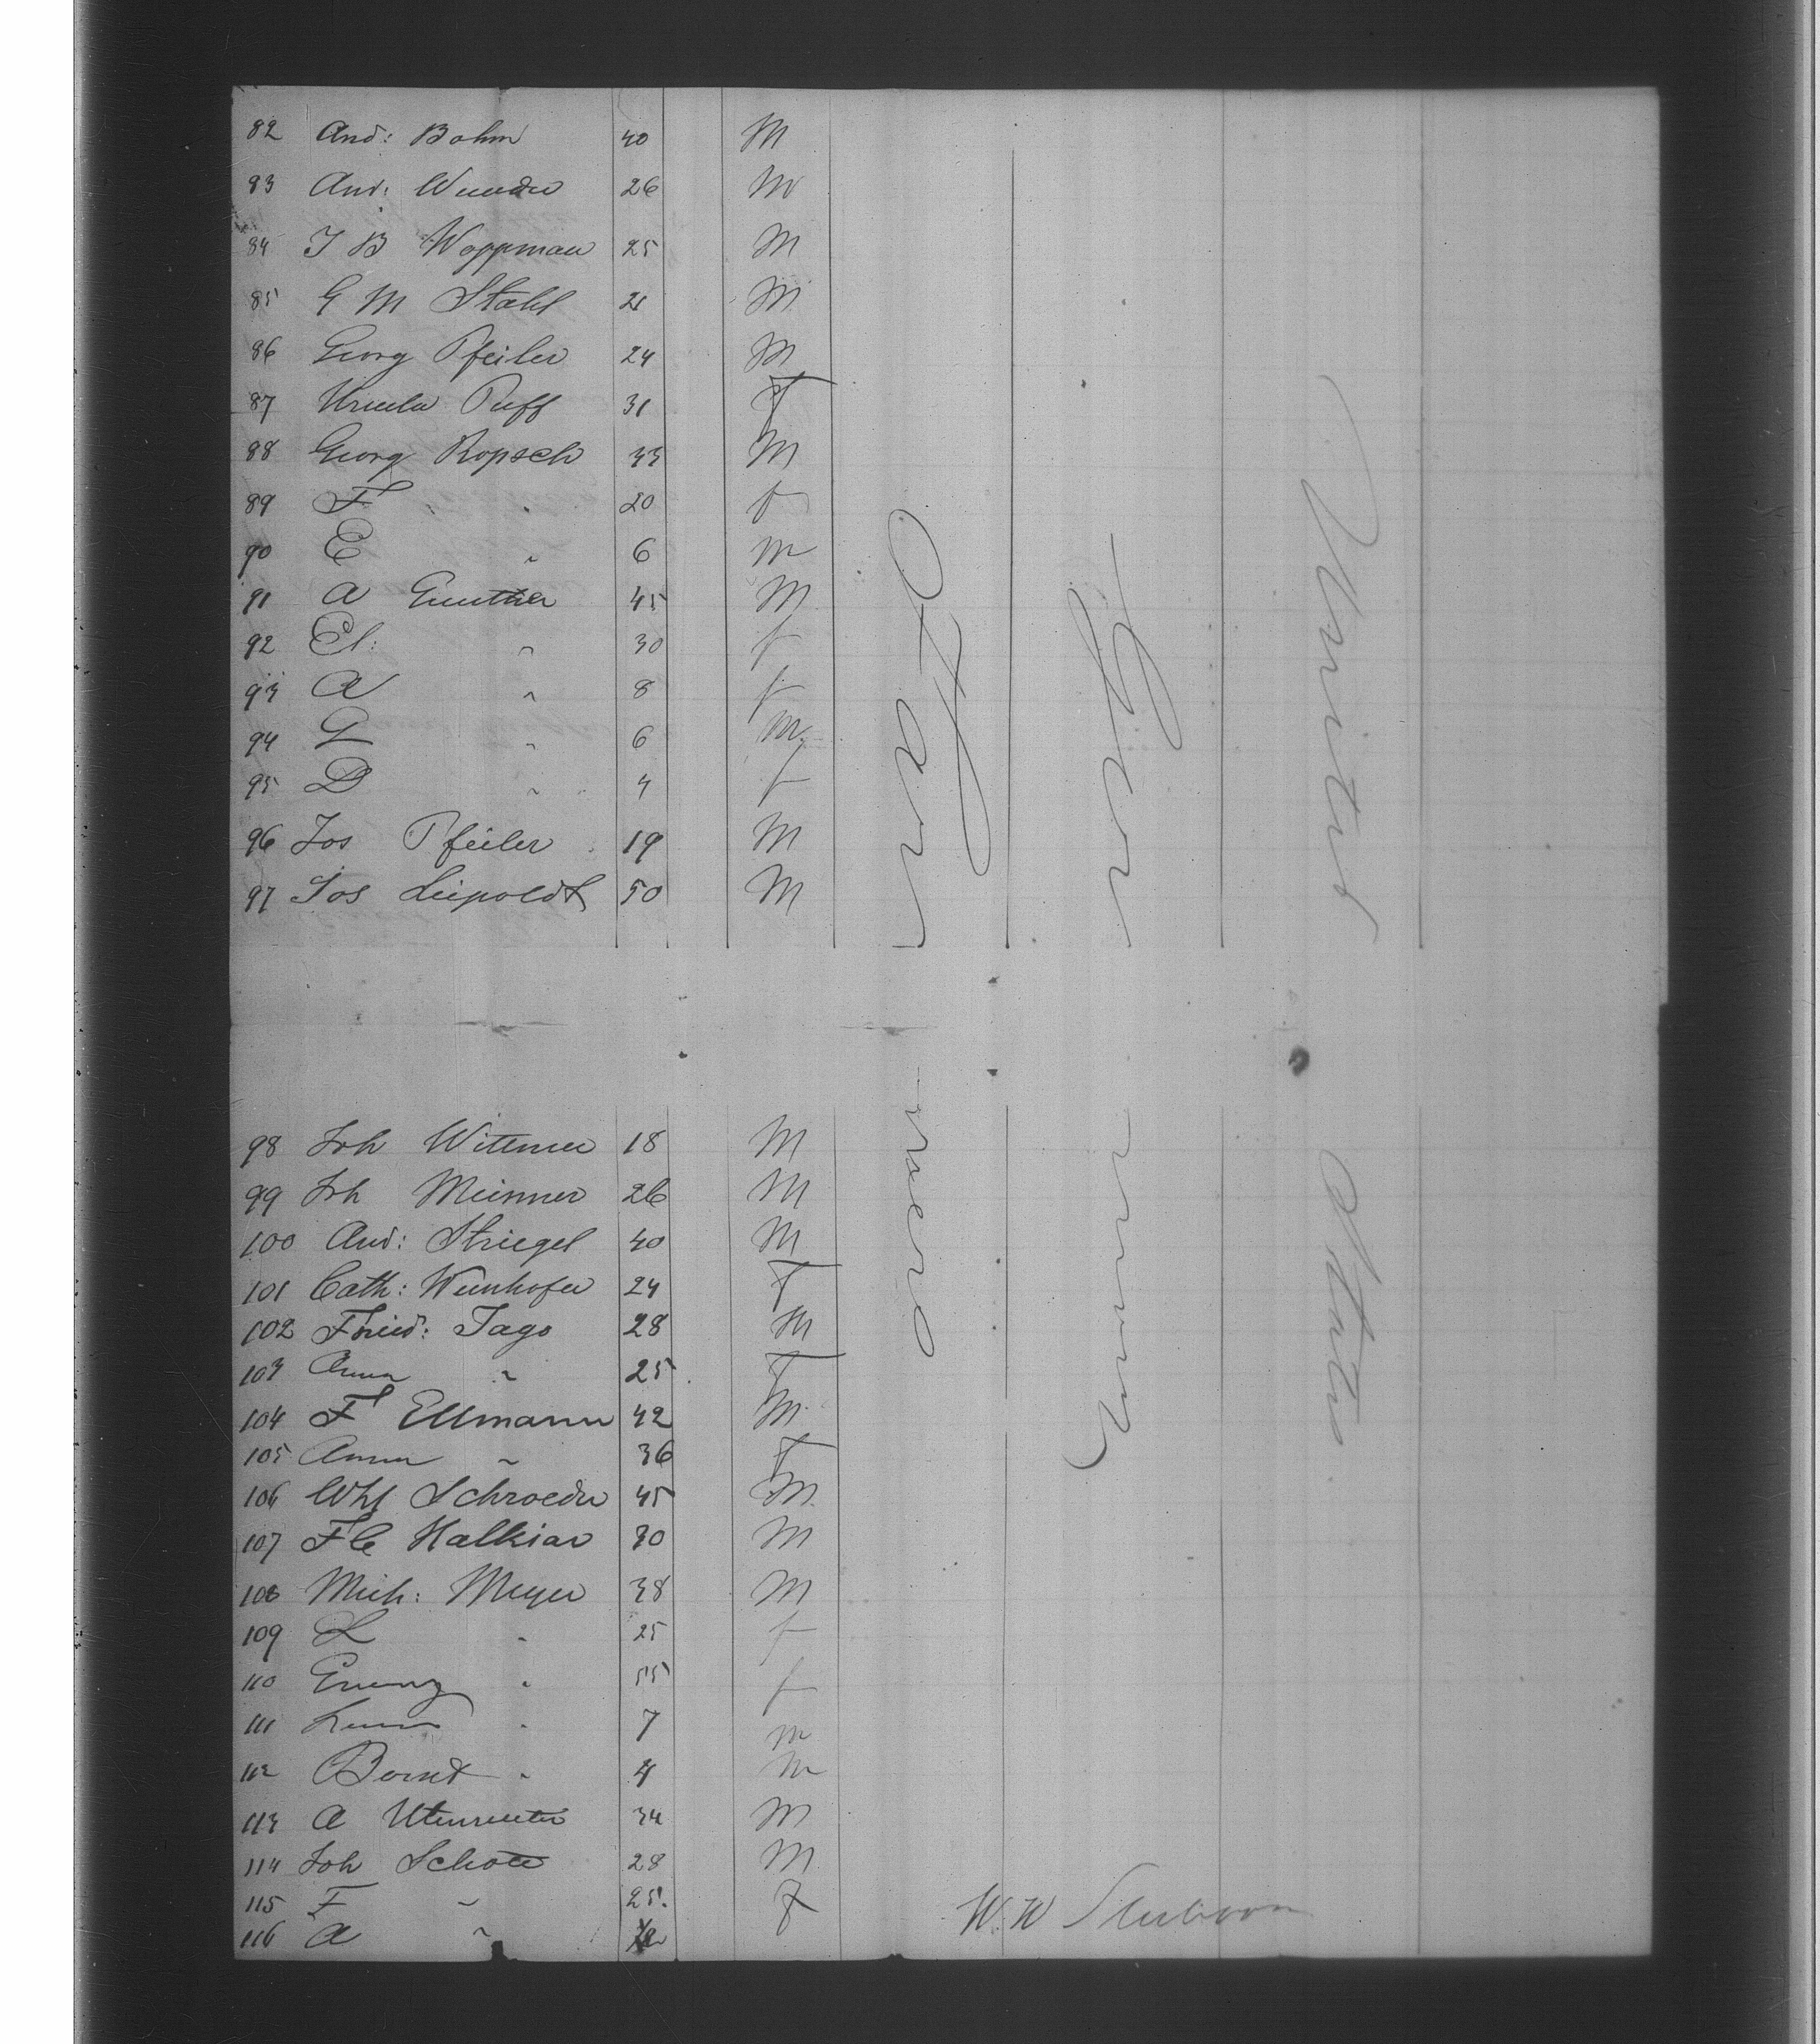 82 And: Bohm 40 M
83 And: Wunder 26 M
84 J B Woppman 25 M
85 G M Stahl 21 M
86 Georg Pfeiler 24 M
87 Ursula Puff 31 F
88 Georg Ropsch 33 M
89 F " 20 f
90 E " 6 m
91 A Gunther 45 M
92 El: " 30 f
93 A " 8 f
94 G " 6 M
95 D " 4 f
96 Jos Pfeiler 19 M
97 Jos Leipoldt 50 M
98 Joh Wittmer 18 M
99 Joh Meinner 26 M
100 And: Striegel 40 M
101 Cath: Weinhofer 24 F
102 Fried: Jago 28 M
103 Anna " 25 F
104 F Ellmann 42 M
105 Anna " 36 F
106 Whl Schroeder 45 M
107 F C Halkiar 30 M
108 Mich: Meyer 38 M
109 L " 25 f
110 " 55 f
111 " 7 m
112 Bernt " 4 m
113 A 34 M
114 Joh Schott 28 M
115 F " 25. f
116 A "
Farmers
Germany
United States
W. W